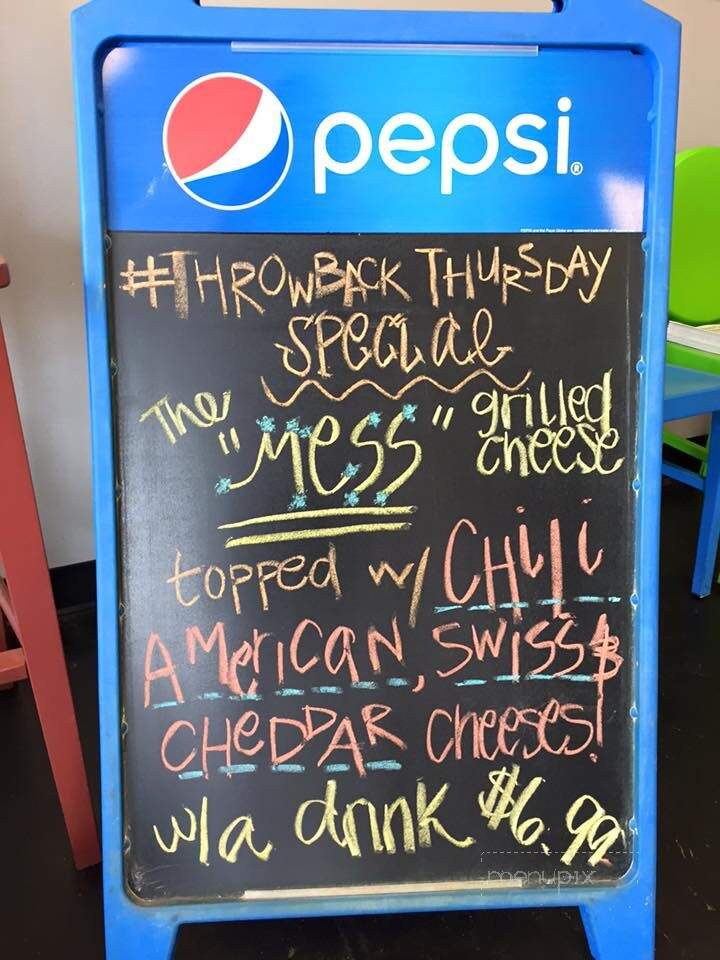 pepsi®
#THROWBACK THURSDAY
SPECIAL
The "MESS" grilled cheese
topped w/ CHili
AMERICAN, SWISS &
CHEDDAR cheeses!
w/a drink $6.99
menupix